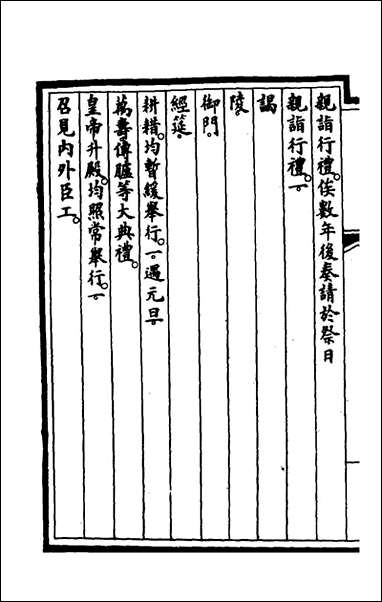 親詣行禮。俟數年後奏請於祭日
親詣行禮。一
謁
陵。
御門。
經筵。
耕耤。均暫緩舉行。一遇元旦。
萬壽傳臚等大典禮。
皇帝升殿。均照常舉行。一
召見內外臣工。